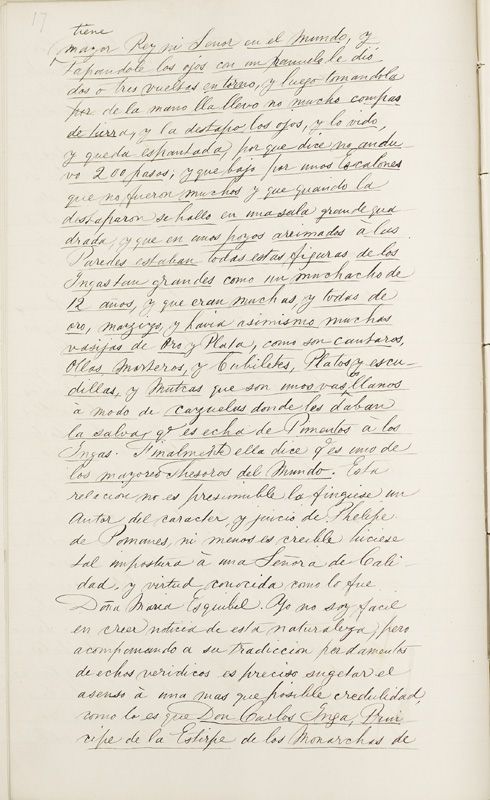 17
tiene
mayor Rey ni Señor en el Mundo, y
tapandole los ojos con un panuelo le dió
dos o tres vueltas en torno, y luego tomandola
por de la mano lla llevo no mucho compas
de tierra, y la destapo los ojos, y lo vido,
y queda espantada, por que dice no andu-
vo 200 pasos, y que bajo por unos Escalones
que no fueron muchos y que quando la
distaparon se hallo en una sala grande qua
drada, y que en unos poyos arrimados à las
Paredes estaban todas estas figuras de los
Ingas tan grandes como un muchacho de
12 años, y que eran muchas, y todas de
oro, mazizo, y havia asimismo muchas
vasijas de Oro y Plata, como son cantaros,
Ollas, Morteros, y Cubiletes, Platos y escu-
dillas, y Muticas que son unos vasos llanos
à modo de cazuelas donde les daban
la salva, qe es echa de Pimentos a los
Ingas. Finalmente ella dice qe es uno de
los mayores thesoros del Mundo. Esta
relacion no es presumible la finguese un
Autor del caracter y juicio de Phelipe
de Pomanes, ni menos es creible hiciese
tal impostura à una Señora de Cali-
dad, y virtud conocida como lo fue
Doña Maria Esquibel. Yo no soy facil
en creer noticia de esta naturaleza, pero
acompanando a su tradiccion por damentos
de echos veridicos es preciso sugetar el
asenso à una mas que posible credulidad,
como lo es que Don Carlos Inga, Prin-
cipe de la Estirpe de los Monarchas de